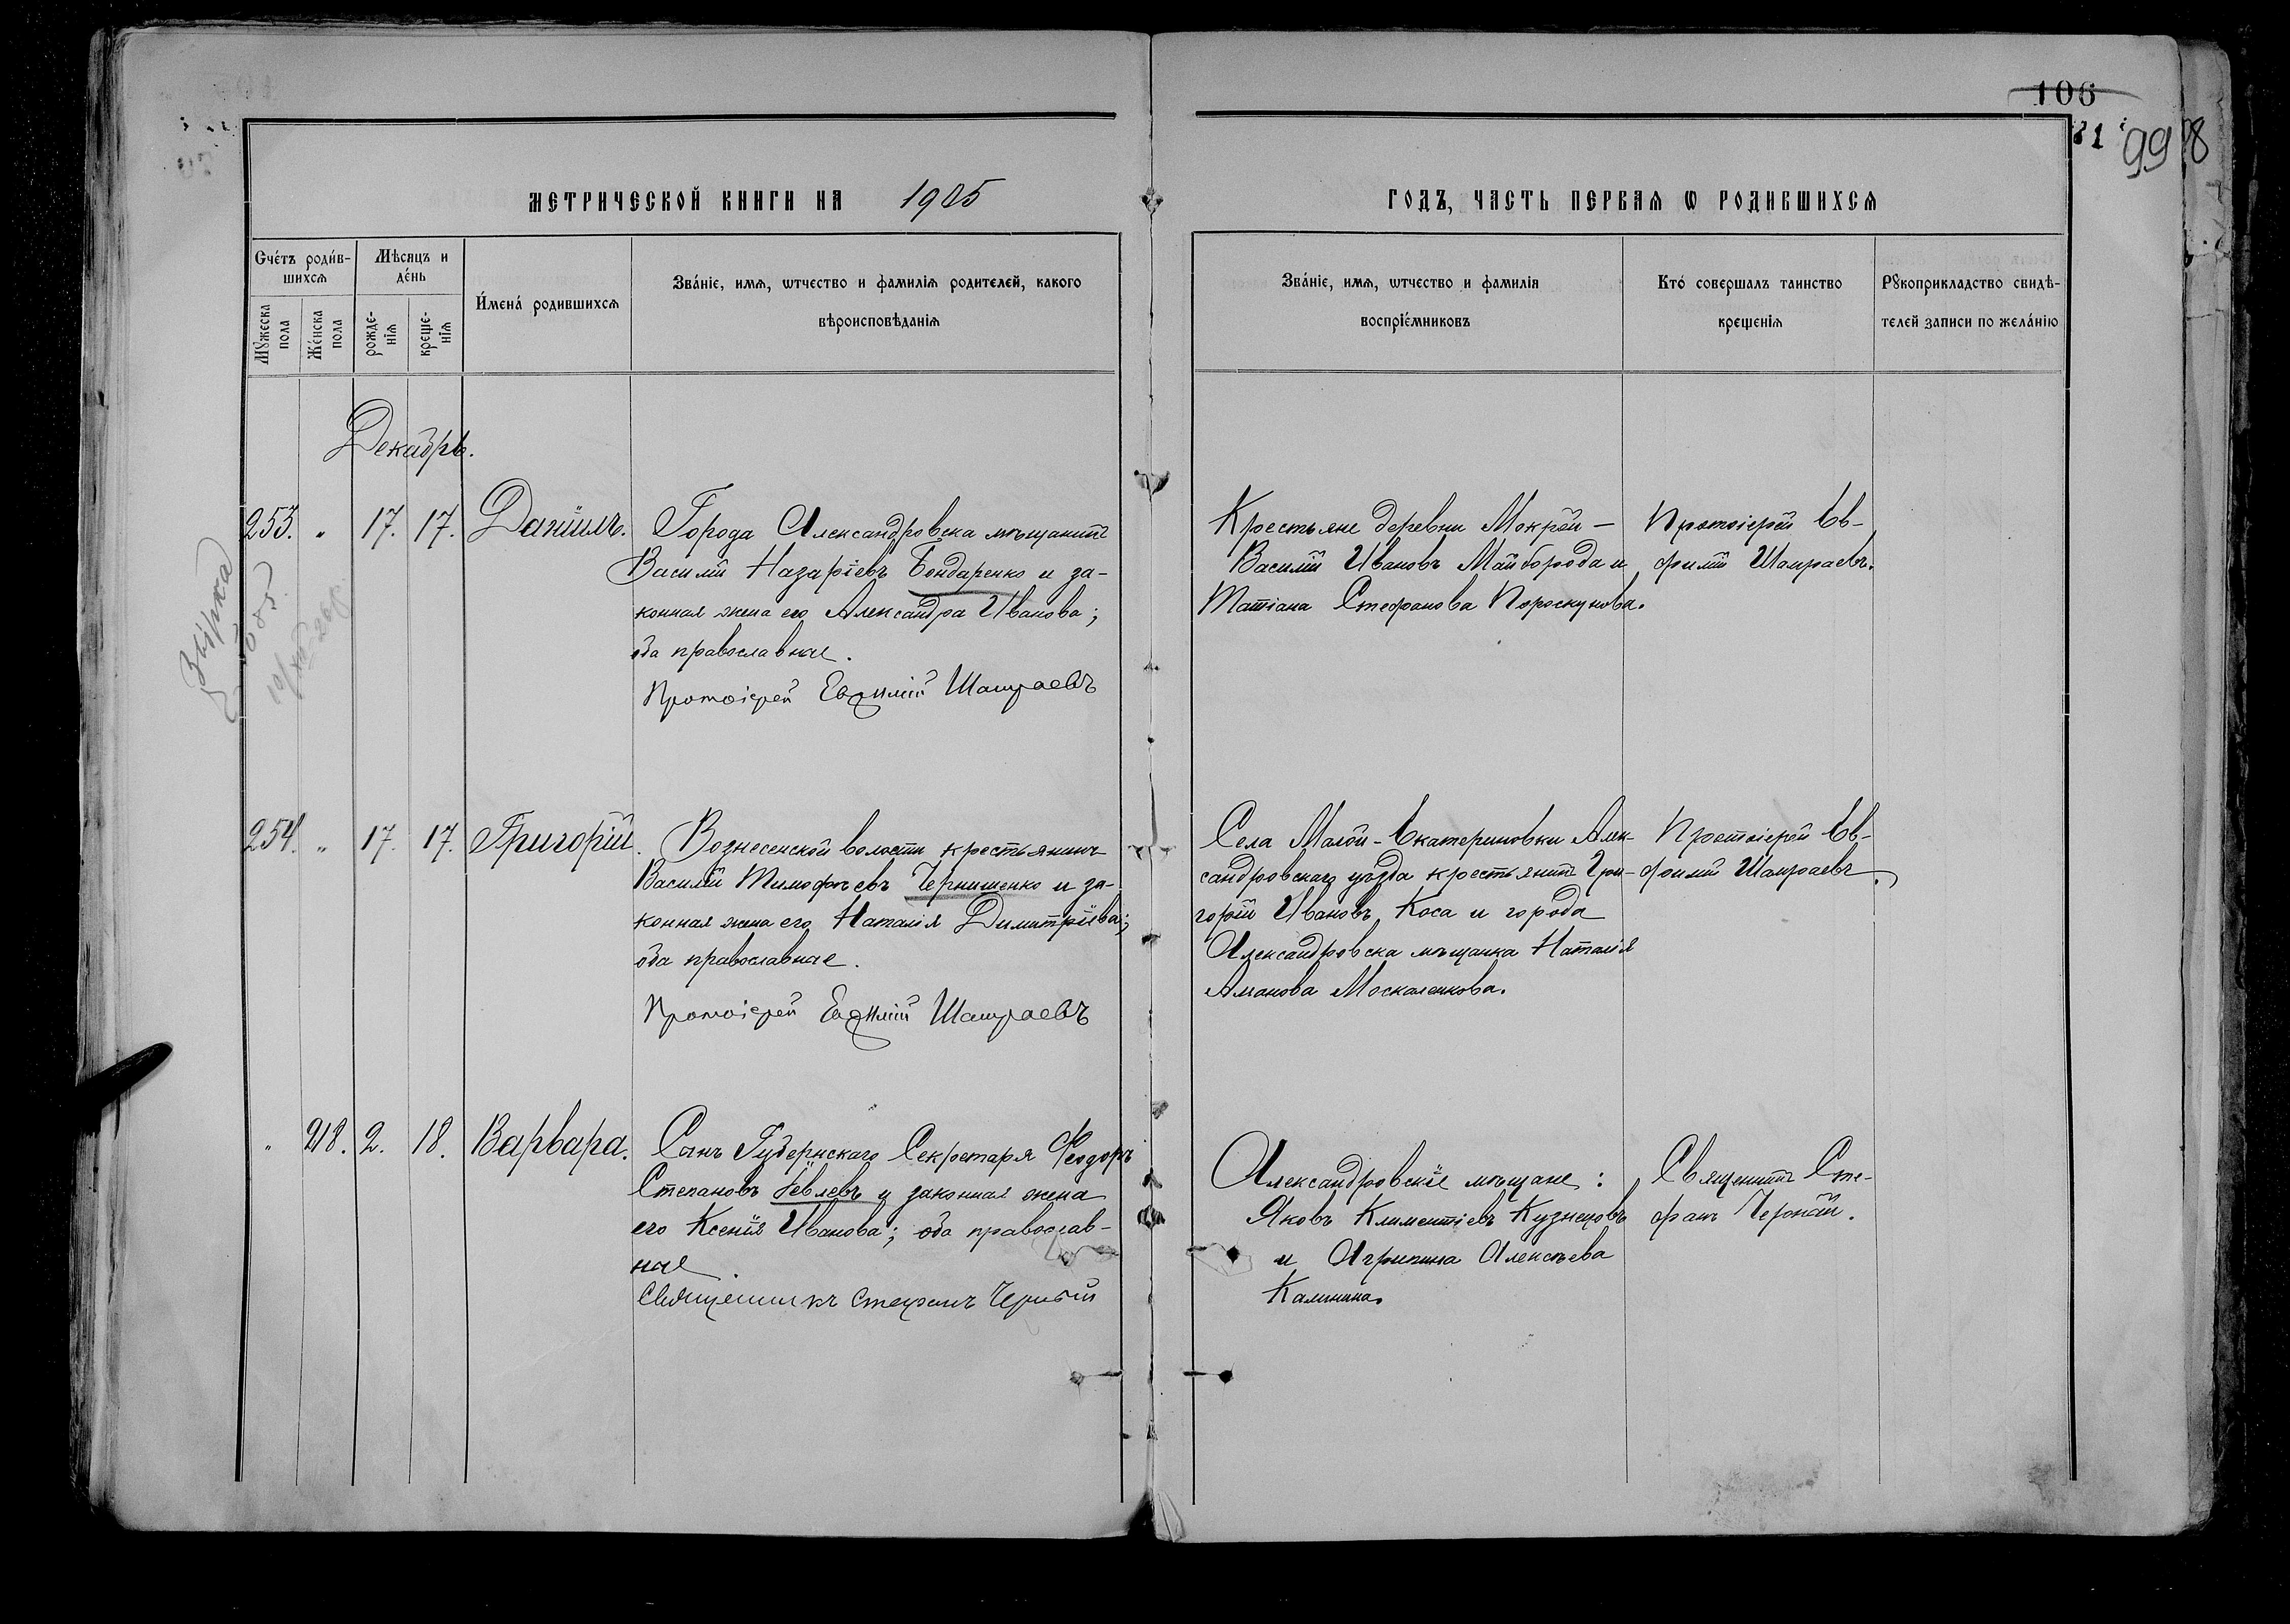 106
81
99
8
МЕТРИЧЕСКОЙ КНИГИ НА 1905
ГОДЪ, ЧАСТЬ ПЕРВАЯ Ѡ РОДИВШИХСЯ
Счетъ родив-
шихся
Мѣсяцъ и
день
Мужеска
пола
Женска
пола
рожде-
нія
креще-
нія
Имена родившихся
Званіе, имя, ѡтчество и фамилія родителей, какого
вѣроисповѣданія
Званіе, имя, ѡтчество и фамилія
воспріемниковъ
Кто совершалъ таинство
крещенія
Рукоприкладство свидѣ-
телей записи по желанію
Декабрь.
253. " 17. 17. Даніилъ.
Города Александровска мѣщанинъ
Василій Назаріевъ Бондаренко и за-
конная жена его Александра Иванова;
оба православные.
Протоіерей Евѳимій Шамраевъ
Крестьяне деревни Мокрой –
Василій Ивановъ Майборода и
Татіана Стефанова Пороскунова.
Протоіерей Ев-
фимій Шамраевъ.
254. " 17. 17. Григорій.
Вознесенской волости крестьянинъ
Василій Тимофѣевъ Чернишенко и за-
конная жена его Наталія Димитріева;
оба православные.
Протоіерей Евѳимій Шамраевъ
Села Малой-Екатериновки Алек-
сандровскаго уѣзда крестьянинъ Гри-
горій Ивановъ Коса и города
Александровска мѣщанка Наталія
Москаленкова.
Протоіерей Ев-
фимій Шамраевъ.
" 218. 2. 18. Варвара.
Сынъ Губернскаго Секретаря Феодоръ
Степановъ Іевлевъ и законная жена
его Ксенія Иванова; оба православ-
ные.
Священникъ Стефанъ Черный
Александровскіе мѣщане:
Яковъ Климентіевъ Кузнецовъ
и Агрипина Алексѣева
Калинина.
Священникъ Сте-
фанъ Черный.